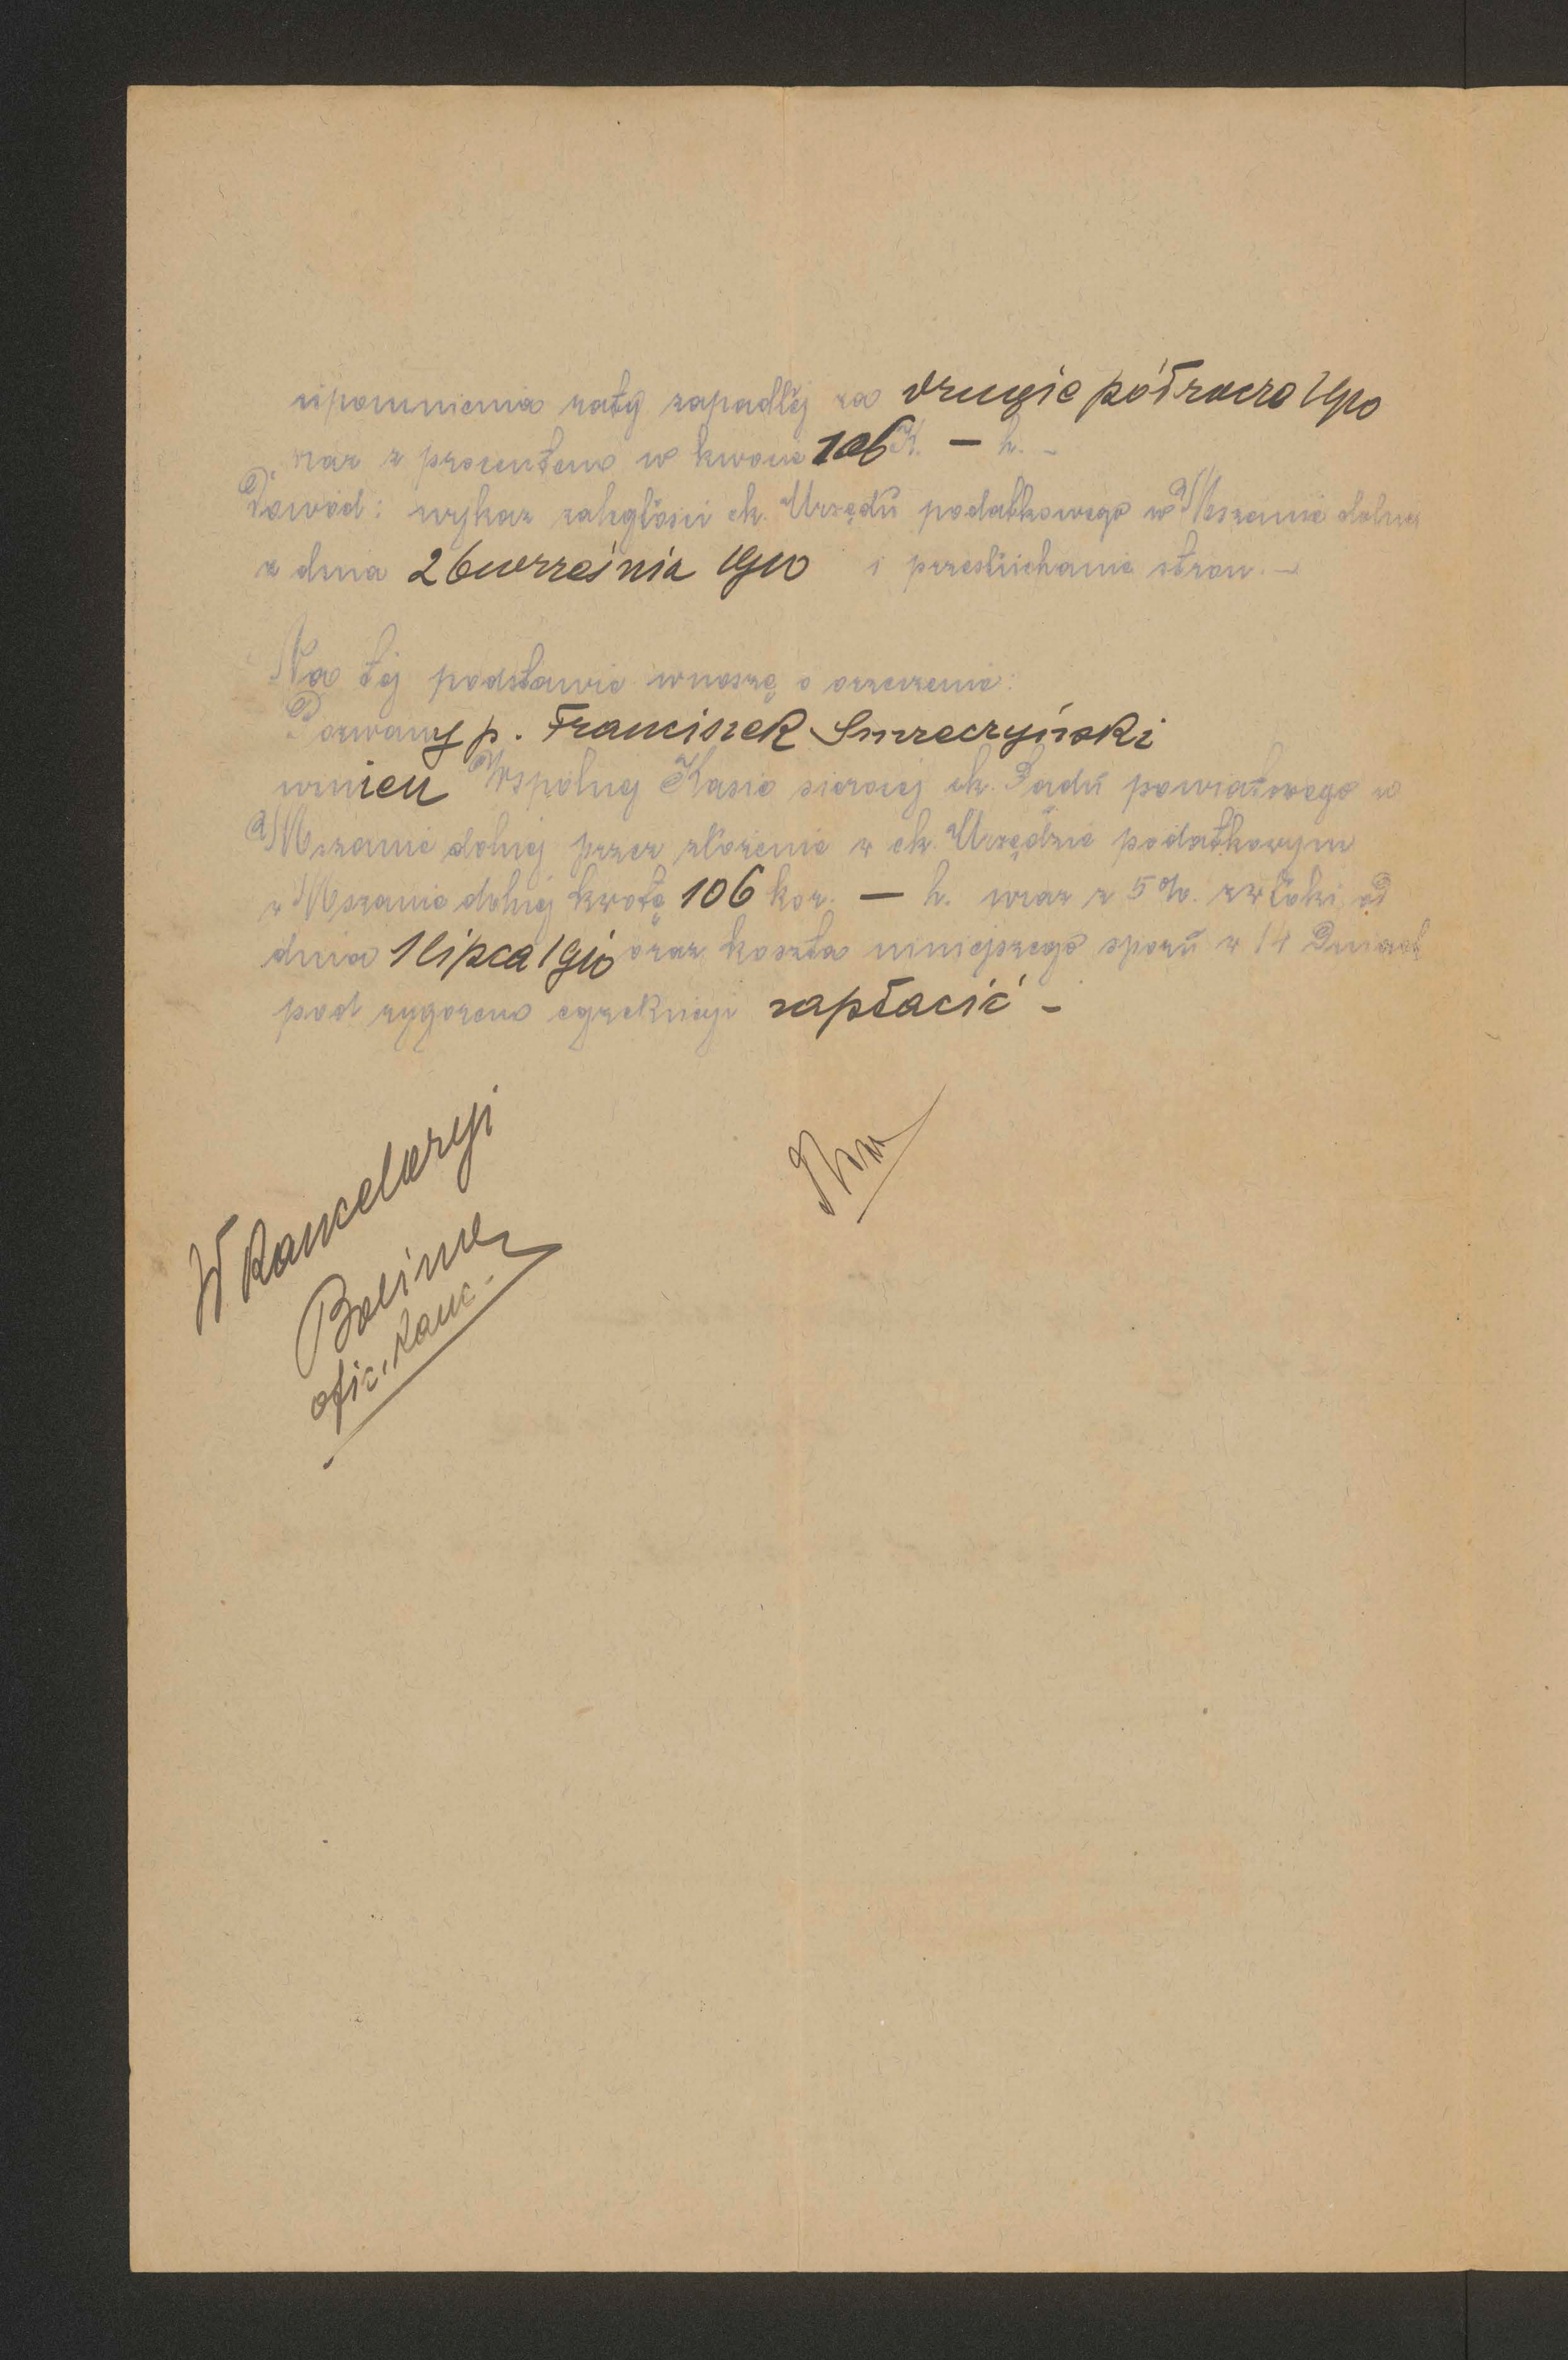 upomnienia raty zapadłej za drugie półrocze 1910
wraz z procentem w kwocie 106 K. — h. –
Dowód: wykaz zaległości ck. Urzędu podatkowego w Mszanie dolnej
z dnia 26 września 1910 i przesłuchanie stron. –
Na tej podstawie wnoszę o orzeczenie:
Pozwany p. Franciszek Smreczyński
winien Wspólnej Kasie sierocej ck. Sądu powiatowego w
Mszanie dolnej przez złożenie w ck. Urzędzie podatkowym
w Mszanie dolnej kwotę 106 kor. — h. wraz z 5%. zwłoki od
dnia 1 lipca 1910 oraz koszta niniejszego sporu w 14 Dniach
pod rygorem egzekucji zapłacić –
W kancelaryi
ofic. kanc.